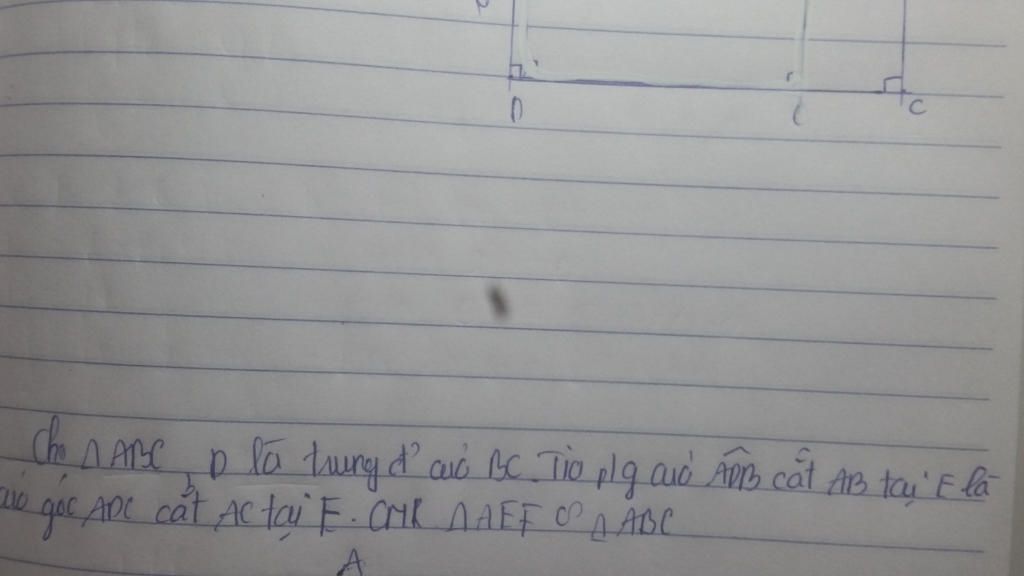 D
C
Cho ΔABC, D là trung đ' của BC. Tia p/g của ADB cắt AB tại E là
của góc ADC cắt AC tại F. CMR ΔAEF ∽ ΔABC
A